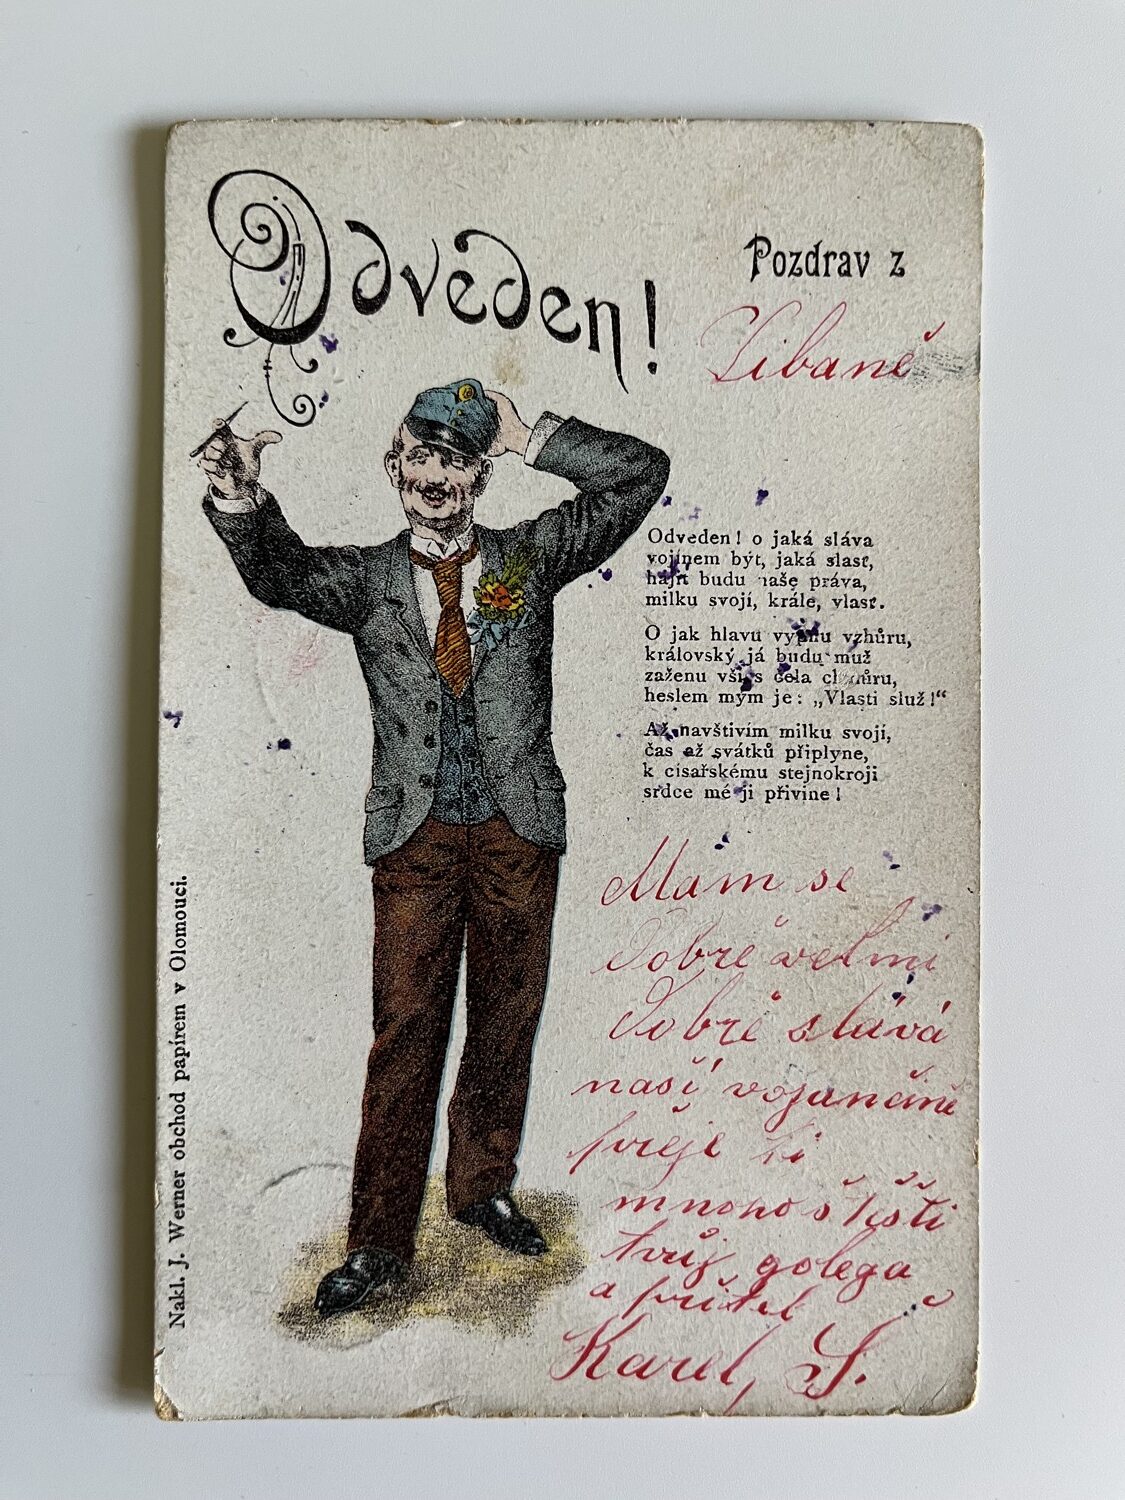 Odveden!
Pozdrav z
Libaně
Odveden! o jaká sláva
vojínem být, jaká slast,
hájit budu naše práva,
milku svojí, krále, vlast.
O jak hlavu vypnu vzhůru,
královský já budu muž
zaženu vši s čela chmůru,
heslem mým je: „Vlasti služ!“
Až navštívím milku svoji,
čas až svátků připlyne,
k císařskému stejnokroji
srdce mé ji přivine!
Mám se
Dobře velmi
Dobře sláva
naší vojančině
přeje ti
mnoho štěsti
tvůj golega
a přitel
Karel, Š.
Nakl. J. Werner obchod papírem v Olomouci.